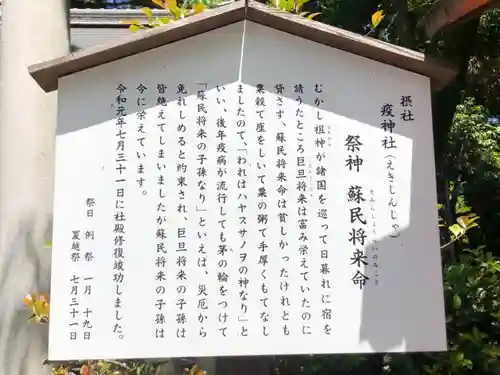 摂社
疫神社（えきしんじゃ）
祭神 蘇民将来命
そみんしょうらいのみこと
むかし祖神が諸国を巡って日暮れに宿を
請うたところ巨旦将来は富み栄えていたのに
貸さず、蘇民将来命は貧しかったけれども
粟殻で座をしいて粟の粥で手厚くもてなし
ましたので、「われはハヤスサノヲの神なり」と
いい、後年疫病が流行しても茅の輪をつけて
「蘇民将来の子孫なり」といえば、災厄から
免れしめると約束され、巨旦将来の子孫は
皆絶えてしまいましたが蘇民将来の子孫は
今に栄えています。
令和元年七月三十一日に社殿修復竣功しました。
祭日 例祭 一月 十九日
夏越祭 七月三十一日